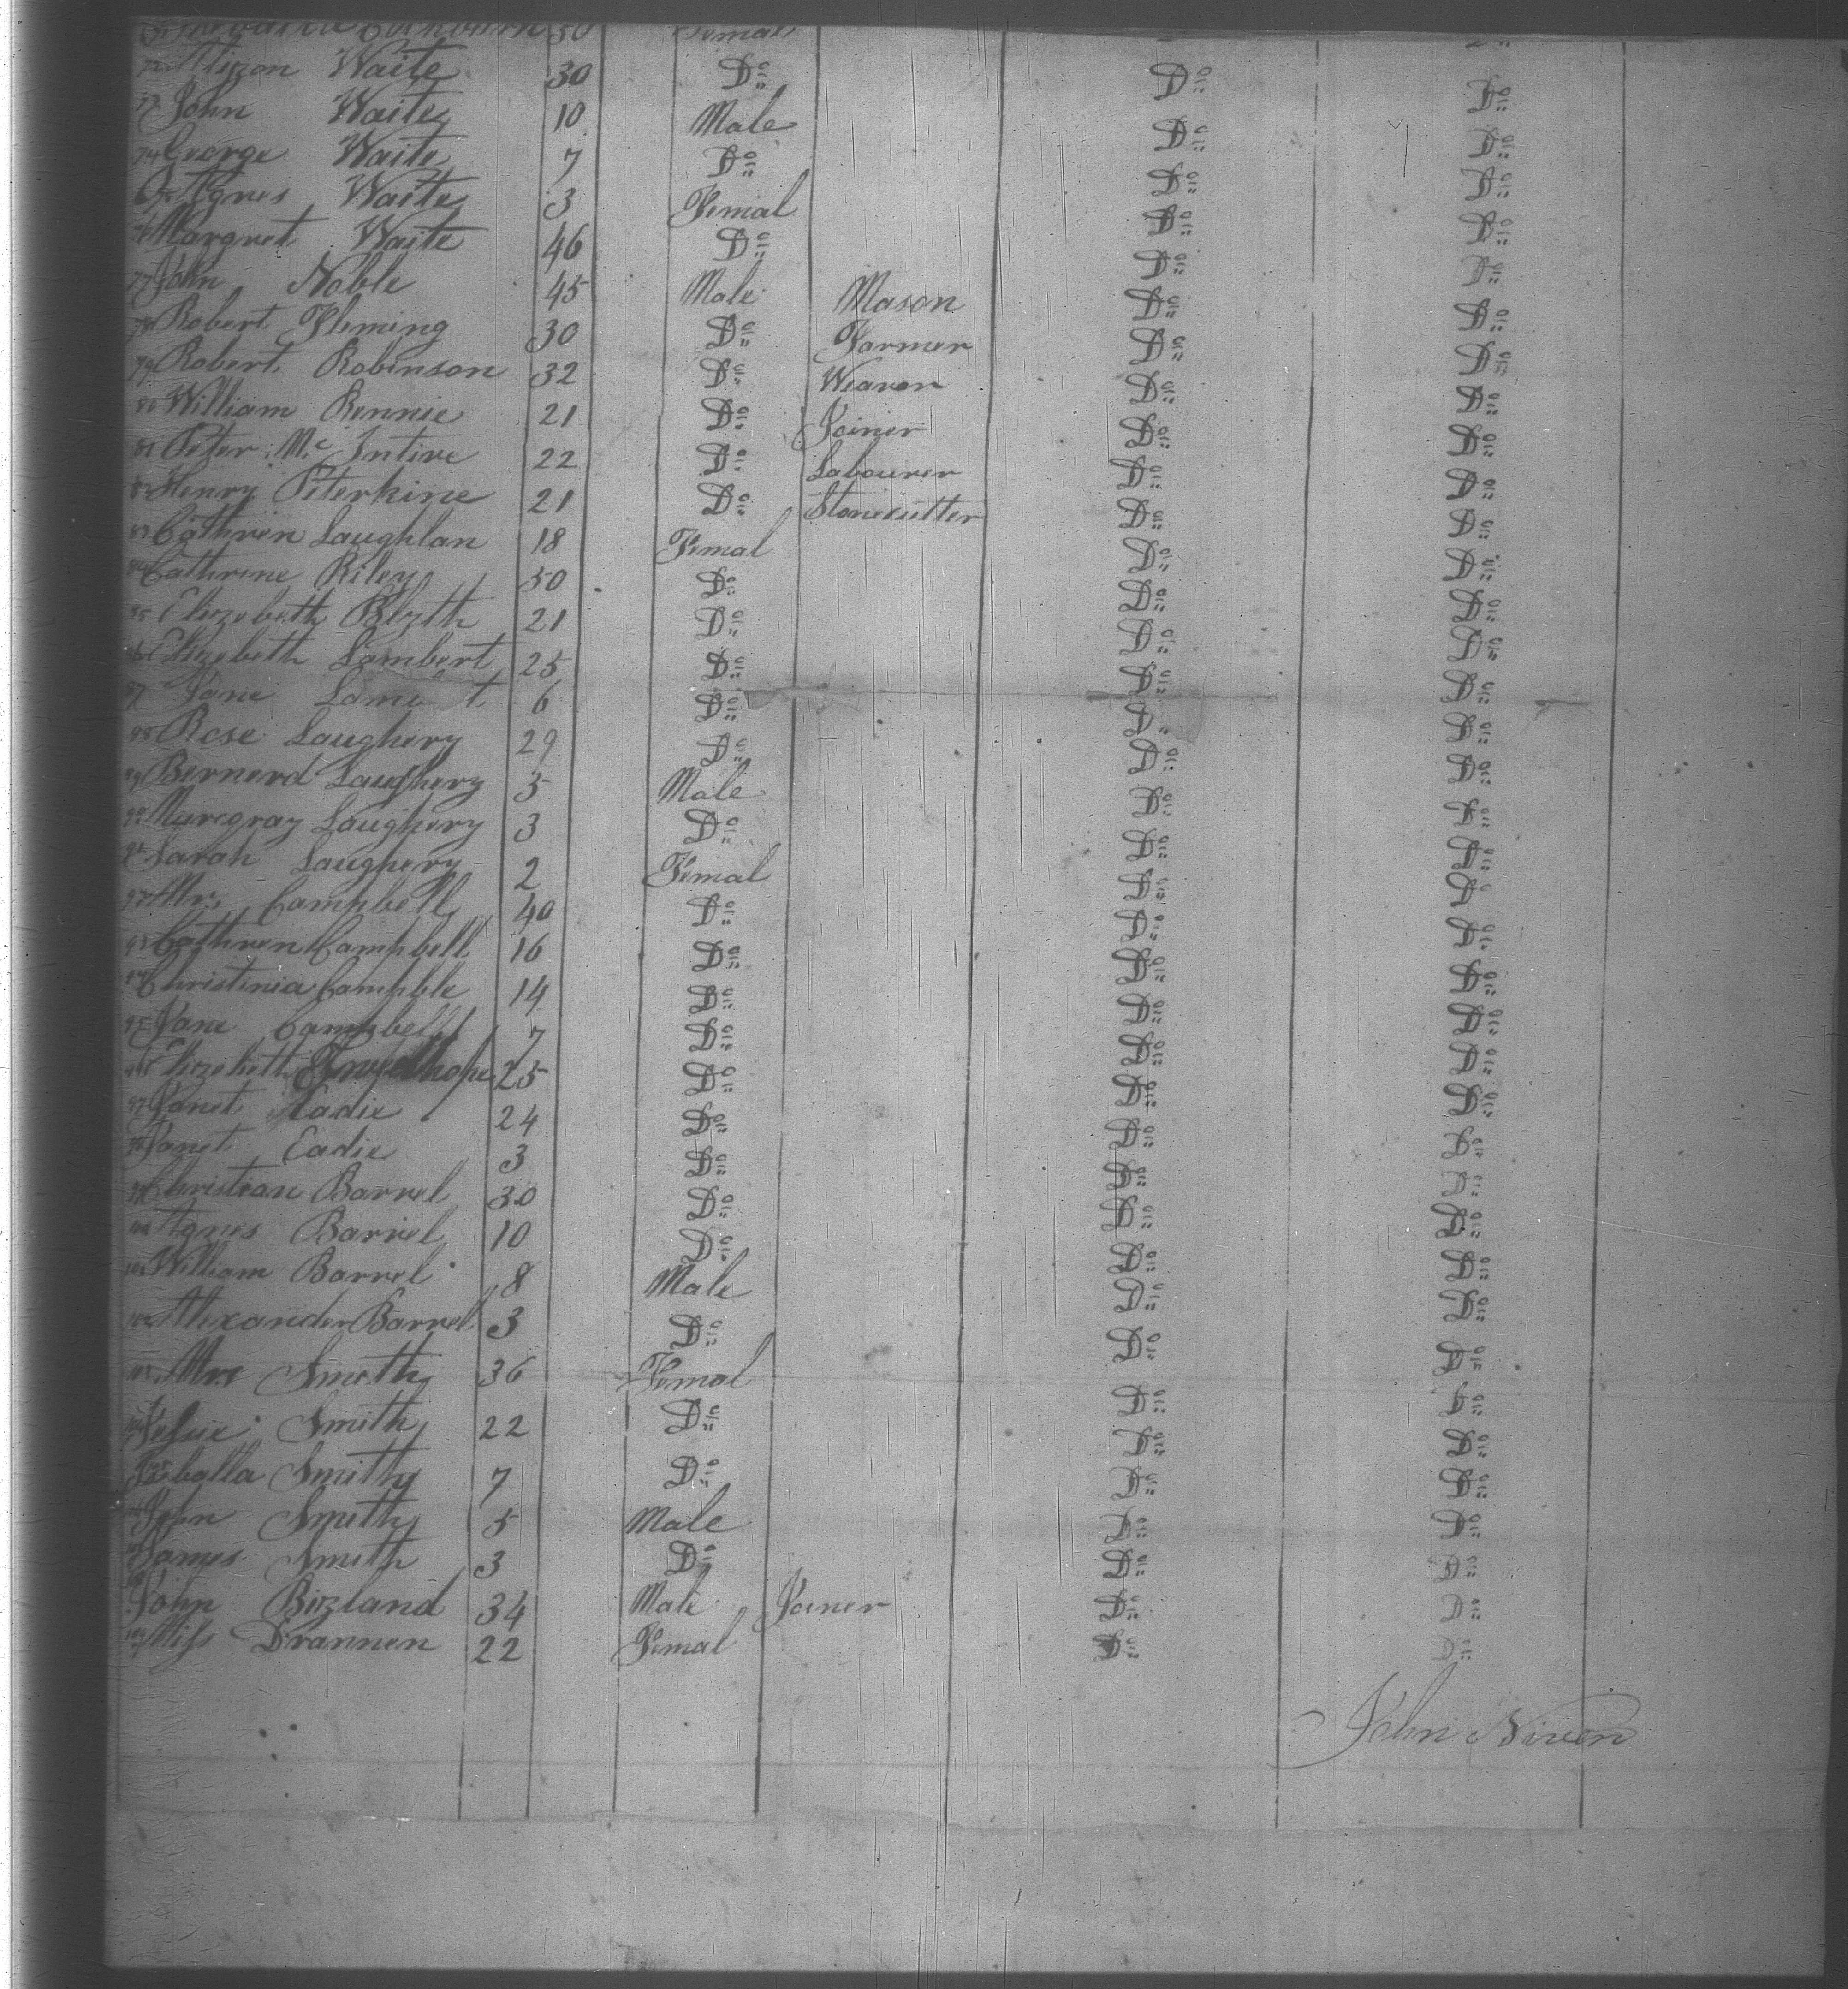 50 Femal
72 Alizon Waite 30 Do Do Do
73 John Waite 10 Male Do Do
74 George Waite 7 Do Do Do
75 Agnes Waite 3 Femal Do Do
76 Margret Waite 46 Do Do Do
77 John Noble 45 Male Mason Do Do
78 Robert Fleming 30 Do Farmer Do Do
79 Robert Robinson 32 Do Weaver Do Do
80 William Rennie 21 Do Joiner Do Do
81 Peter Mc Intire 22 Do Labourer Do Do
82 Henry Peterkine 21 Do Stonecutter Do Do
83 Cathren Laughlan 18 Femal Do Do
84 Cathrine Riley 50 Do Do Do
85 Elizebeth Blyth 21 Do Do Do
86 Elizebeth Lambert 25 Do Do Do
87 Jane 6 Do Do Do
88 Rose Laughery 29 Do Do Do
89 Bernerd Laughery 5 Male Do Do
90 Laughery 3 Do Do Do
91 Sarah Laughery 2 Femal Do Do
92 Mrs Campbell 40 Do Do Do
93 Cathren Campbell 16 Do Do Do
94 Christinia Campble 14 Do Do Do
95 Jane Campbell 7 Do Do Do
96 Elizebeth 25 Do Do Do
97 Janet Eadie 24 Do Do Do
98 Janet Eadie 3 Do Do Do
99 Christian Barrel 30 Do Do Do
100 Agnes Barrel 10 Do Do Do
101 William Barrel 8 Male Do Do
102 Alexander Barrel 3 Do Do Do
103 Mrs Smith 36 Femal Do Do
104 Jessie Smith 22 Do Do Do
105 Isballa Smith 7 Do Do Do
106 John Smith 5 Male Do Do
107 James Smith 3 Do Do Do
108 John Bizland 34 Male Joiner Do Do
109 Miss Drannen 22 Femal Do Do
John Niven